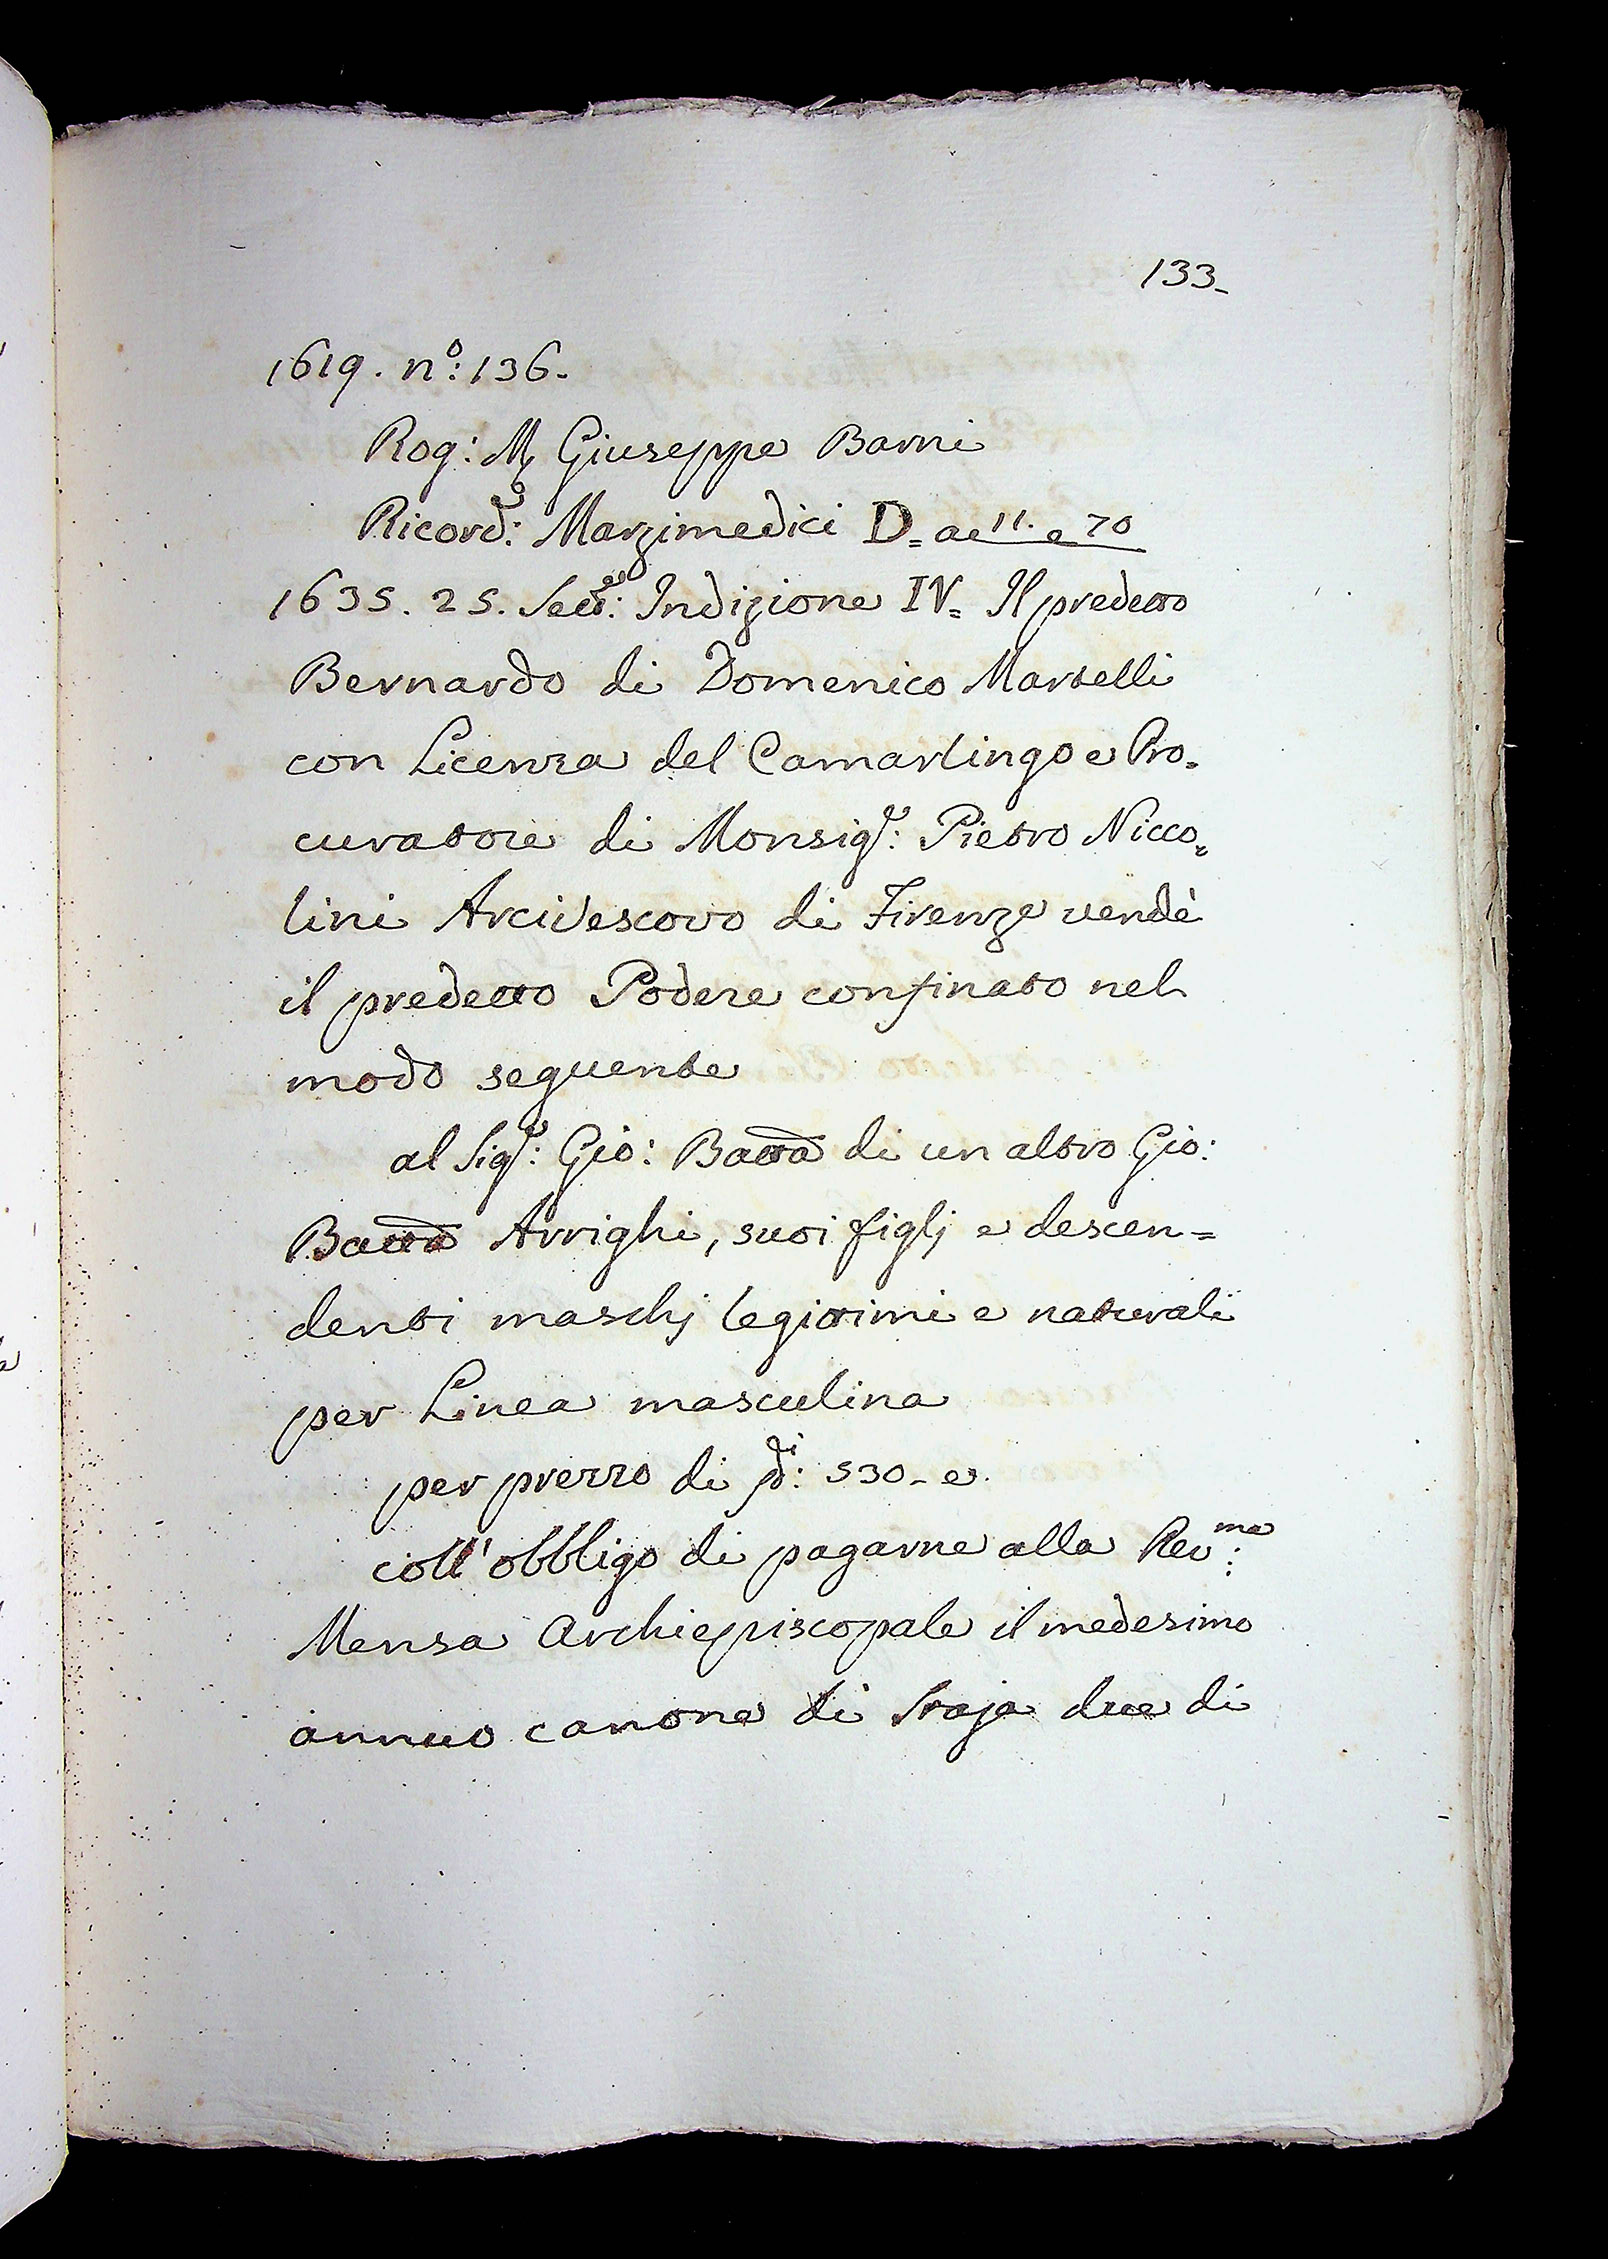 133-
1619. nº: 136-
Rog: M Giuseppe Barni
Ricordo: Marzimedici D= ac 11. e 70
1635. 25. Sett:e Indizione IV= Il predetto
Bernardo di Domenico Martelli
con Licenza del Camarlingo e Pro=
curatore di Monsig:e Pietro Nicco=
lini Arcivescovo di Firenze vendè
il predetto Podere confinato nel
modo seguente
al Sig:e Gio: Batta di un altro Gio:
Batta Arrighi, suoi figlj e descen=
denti maschj legittimi e naturali
per Linea masculina
per prezzo di di: 530-e
coll'obbligo di pagarne alla Rev:ma
Mensa Archiepiscopale il medesimo
annuo canone di Staja due di